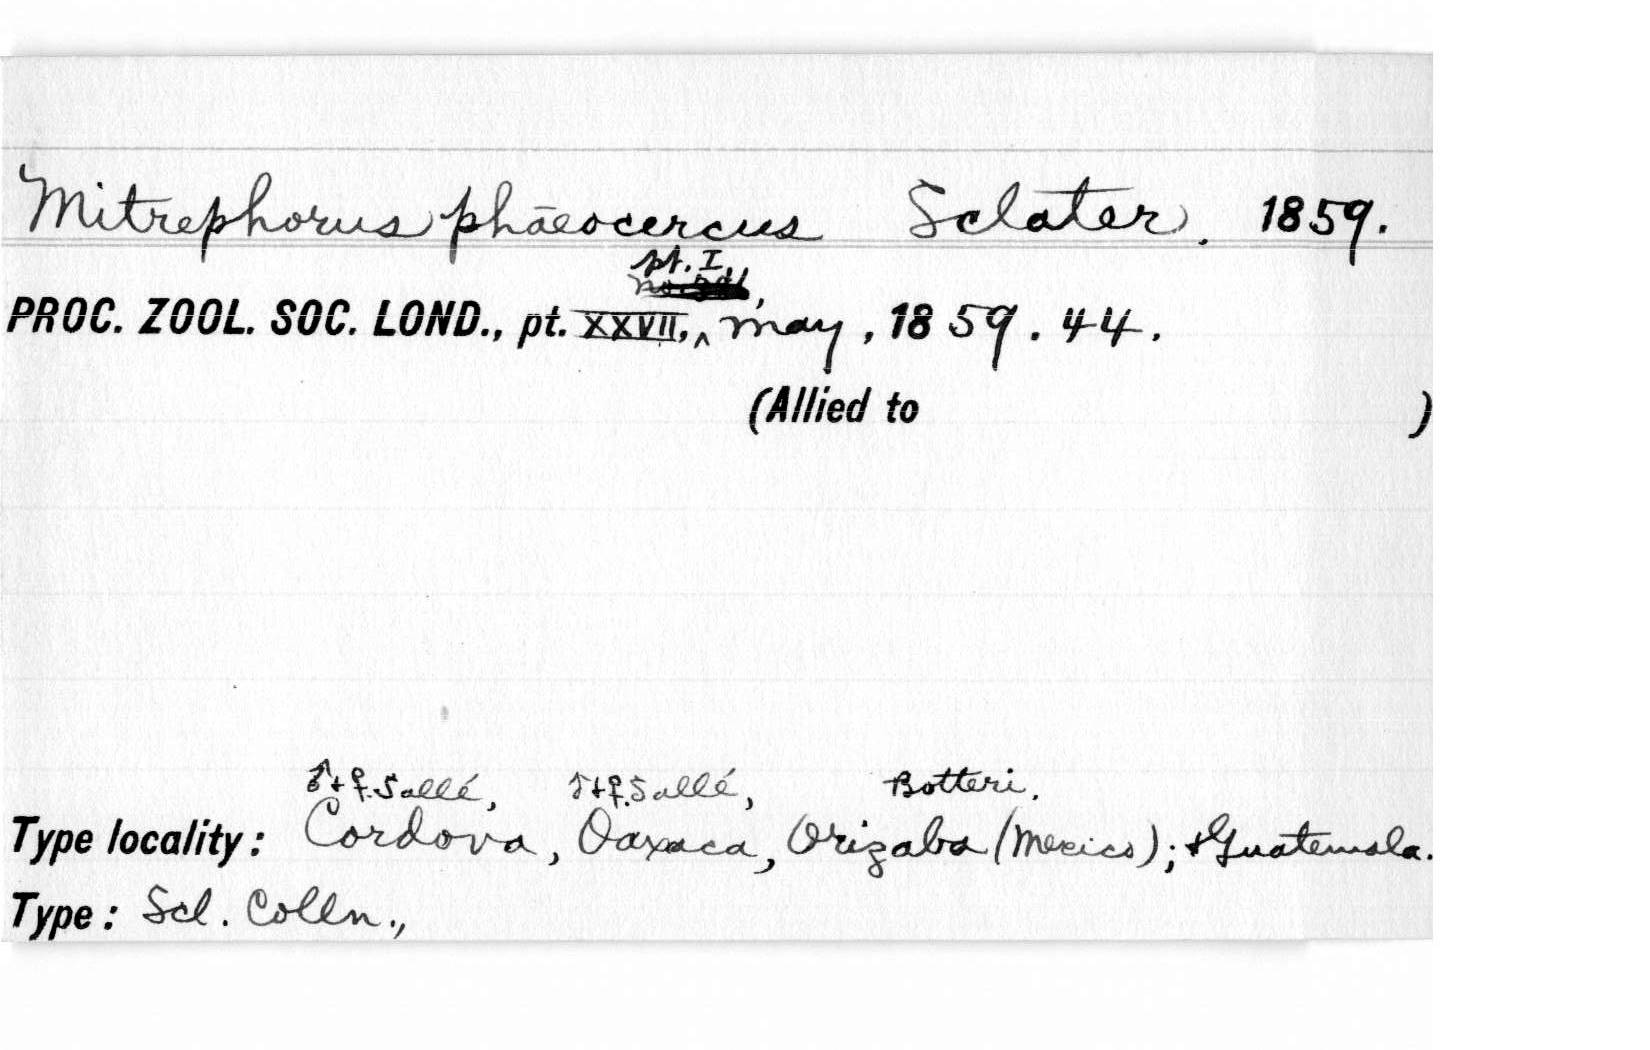 Mitrephorus phaeocercus Sclater. 1859.
pt. I,
PROC. ZOOL. SOC. LOND., pt. XXVII,^ May, 1859. 44.
(Allied to )
♂+♀. Sallé, ♂+♀. Sallé, Botteri.
Type locality: Cordova, Oaxaca, Orizaba (Mexico); + Guatemala.
Type: Scl. Colln.,